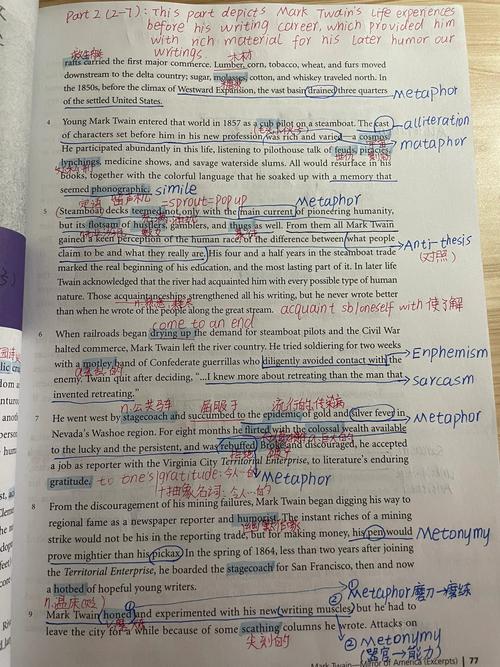 Part 2 (2-7): This part depicts Mark Twain's life experiences
before his writing career, which provided him
with rich material for his later humor our
writings.
木材
rafts carried the first major commerce. Lumber, corn, tobacco, wheat, and furs moved
downstream to the delta country; sugar, molasses, cotton, and whiskey traveled north. In
the 1850s, before the climax of Westward Expansion, the vast basin drained three quarters
of the settled United States.
metaphor
4 Young Mark Twain entered that world in 1857 as a cub pilot on a steamboat. The cast
alliteration
of characters set before him in his new profession was rich and varied—a cosmos.
mataphor
He participated abundantly in this life, listening to pilothouse talk of feuds, piracies,
lynchings, medicine shows, and savage waterside slums. All would resurface in his
books, together with the colorful language that he soaked up with a memory that
seemed phonographic.
simile
留声机
=sprout=pop up
Metaphor
5 Steamboat decks teemed not only with the main current of pioneering humanity,
but its flotsam of hustlers, gamblers, and thugs as well. From them all Mark Twain
gained a keen perception of the human race, of the difference between what people
claim to be and what they really are.
Anti-thesis
(对照)
His four and a half years in the steamboat trade
marked the real beginning of his education, and the most lasting part of it. In later life
Twain acknowledged that the river had acquainted him with every possible type of human
nature. Those acquaintanceships strengthened all his writing, but he never wrote better
than when he wrote of the people along the great stream.
acquaint sb/oneself with 使了解
come to an end
6 When railroads began drying up the demand for steamboat pilots and the Civil War
halted commerce, Mark Twain left the river country. He tried soldiering for two weeks
with a motley band of Confederate guerrillas who diligently avoided contact with the
Enphemism
enemy. Twain quit after deciding, "...I knew more about retreating than the man that
sarcasm
invented retreating."
n.公共马车 屈服于 流行的传染病
7 He went west by stagecoach and succumbed to the epidemic of gold and silver fever in
Metaphor
Nevada's Washoe region. For eight months he flirted with the colossal wealth available
to the lucky and the persistent, and was rebuffed. Broke and discouraged, he accepted
a job as reporter with the Virginia City Territorial Enterprise, to literature's enduring
gratitude.
to one's gratitude: 令人…的
Metaphor
+抽象名词: 令人…的
8 From the discouragement of his mining failures, Mark Twain began digging his way to
regional fame as a newspaper reporter and humorist. The instant riches of a mining
strike would not be his in the reporting trade, but for making money, his pen would
Metonymy
prove mightier than his pickax. In the spring of 1864, less than two years after joining
the Territorial Enterprise, he boarded the stagecoach for San Francisco, then and now
a hotbed of hopeful young writers.
n.温床
① Metaphor 磨刀→磨练
9 Mark Twain honed and experimented with his new writing muscles, but he had to
leave the city for a while because of some scathing columns he wrote. Attacks on
尖刻的
② Metonymy
(器官→能力)
Mark Twain—Mirror of America (Excerpts) 77